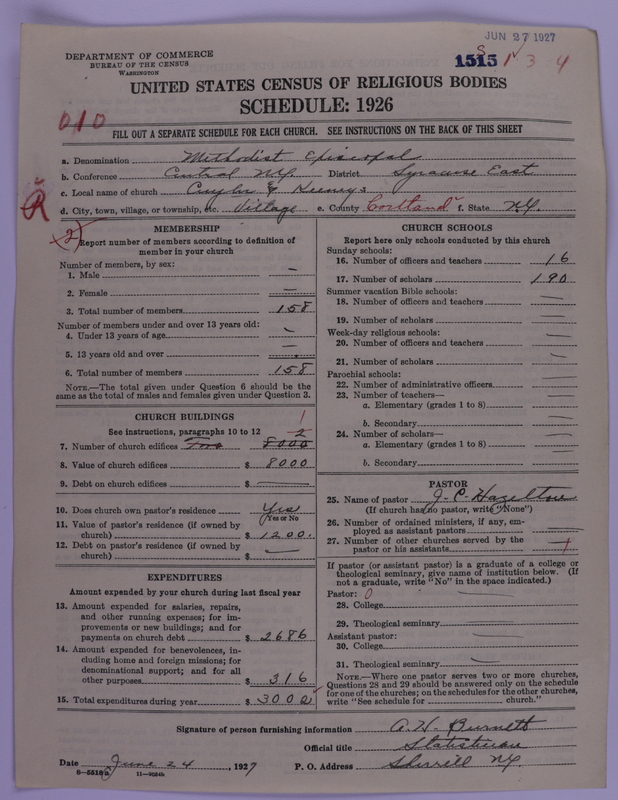 JUN 27 1927
DEPARTMENT OF COMMERCE
BUREAU OF THE CENSUS
WASHINGTON
1515 S 1 3 4
UNITED STATES CENSUS OF RELIGIOUS BODIES
SCHEDULE: 1926
010
FILL OUT A SEPARATE SCHEDULE FOR EACH CHURCH. SEE INSTRUCTIONS ON THE BACK OF THIS SHEET
a. Denomination Methodist Episcopal
b. Conference Central N.Y. District Syracuse East
c. Local name of church Cuyler & Keeneys
d. City, town, village, or township, etc. Village e. County Cortland f. State N.Y.
2
MEMBERSHIP
Report number of members according to definition of member in your church
Number of members, by sex:
1. Male —
2. Female —
3. Total number of members 158
Number of members under and over 13 years old:
4. Under 13 years of age —
5. 13 years old and over —
6. Total number of members 158
NOTE.—The total given under Question 6 should be the same as the total of males and females given under Question 3.
CHURCH BUILDINGS
See instructions, paragraphs 10 to 12
1
2
7. Number of church edifices Two 8000
8. Value of church edifices $ 8000
9. Debt on church edifices $ —
10. Does church own pastor's residence Yes
Yes or No
11. Value of pastor's residence (if owned by church) $ 1200.
12. Debt on pastor's residence (if owned by church) $ —
EXPENDITURES
Amount expended by your church during last fiscal year
13. Amount expended for salaries, repairs, and other running expenses; for improvements or new buildings; and for payments on church debt $ 2686
14. Amount expended for benevolences, including home and foreign missions; for denominational support; and for all other purposes $ 316
15. Total expenditures during year $ 3002
CHURCH SCHOOLS
Report here only schools conducted by this church
Sunday schools:
16. Number of officers and teachers 16
17. Number of scholars 190
Summer vacation Bible schools:
18. Number of officers and teachers —
19. Number of scholars —
Week-day religious schools:
20. Number of officers and teachers —
21. Number of scholars —
Parochial schools:
22. Number of administrative officers —
23. Number of teachers—
a. Elementary (grades 1 to 8) —
b. Secondary —
24. Number of scholars—
a. Elementary (grades 1 to 8) —
b. Secondary —
PASTOR
25. Name of pastor J. C. Hazelton
(If church has no pastor, write "None")
26. Number of ordained ministers, if any, employed as assistant pastors —
27. Number of other churches served by the pastor or his assistants 1
If pastor (or assistant pastor) is a graduate of a college or theological seminary, give name of institution below. (If not a graduate, write "No" in the space indicated.)
Pastor: 0
28. College —
29. Theological seminary —
Assistant pastor:
30. College —
31. Theological seminary —
NOTE.—Where one pastor serves two or more churches, Questions 28 and 29 should be answered only on the schedule for one of the churches; on the schedules for the other churches, write "See schedule for church."
Signature of person furnishing information A. H. Burnett
Official title Statistician
Date June 24, 1927 P. O. Address Sherrill N.Y.
11—9264b